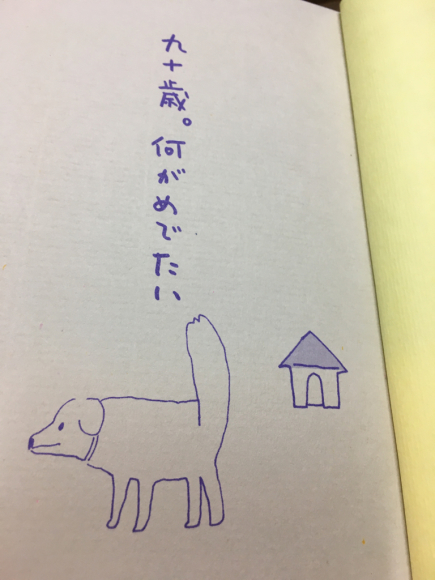 九十歳。何がめでたい